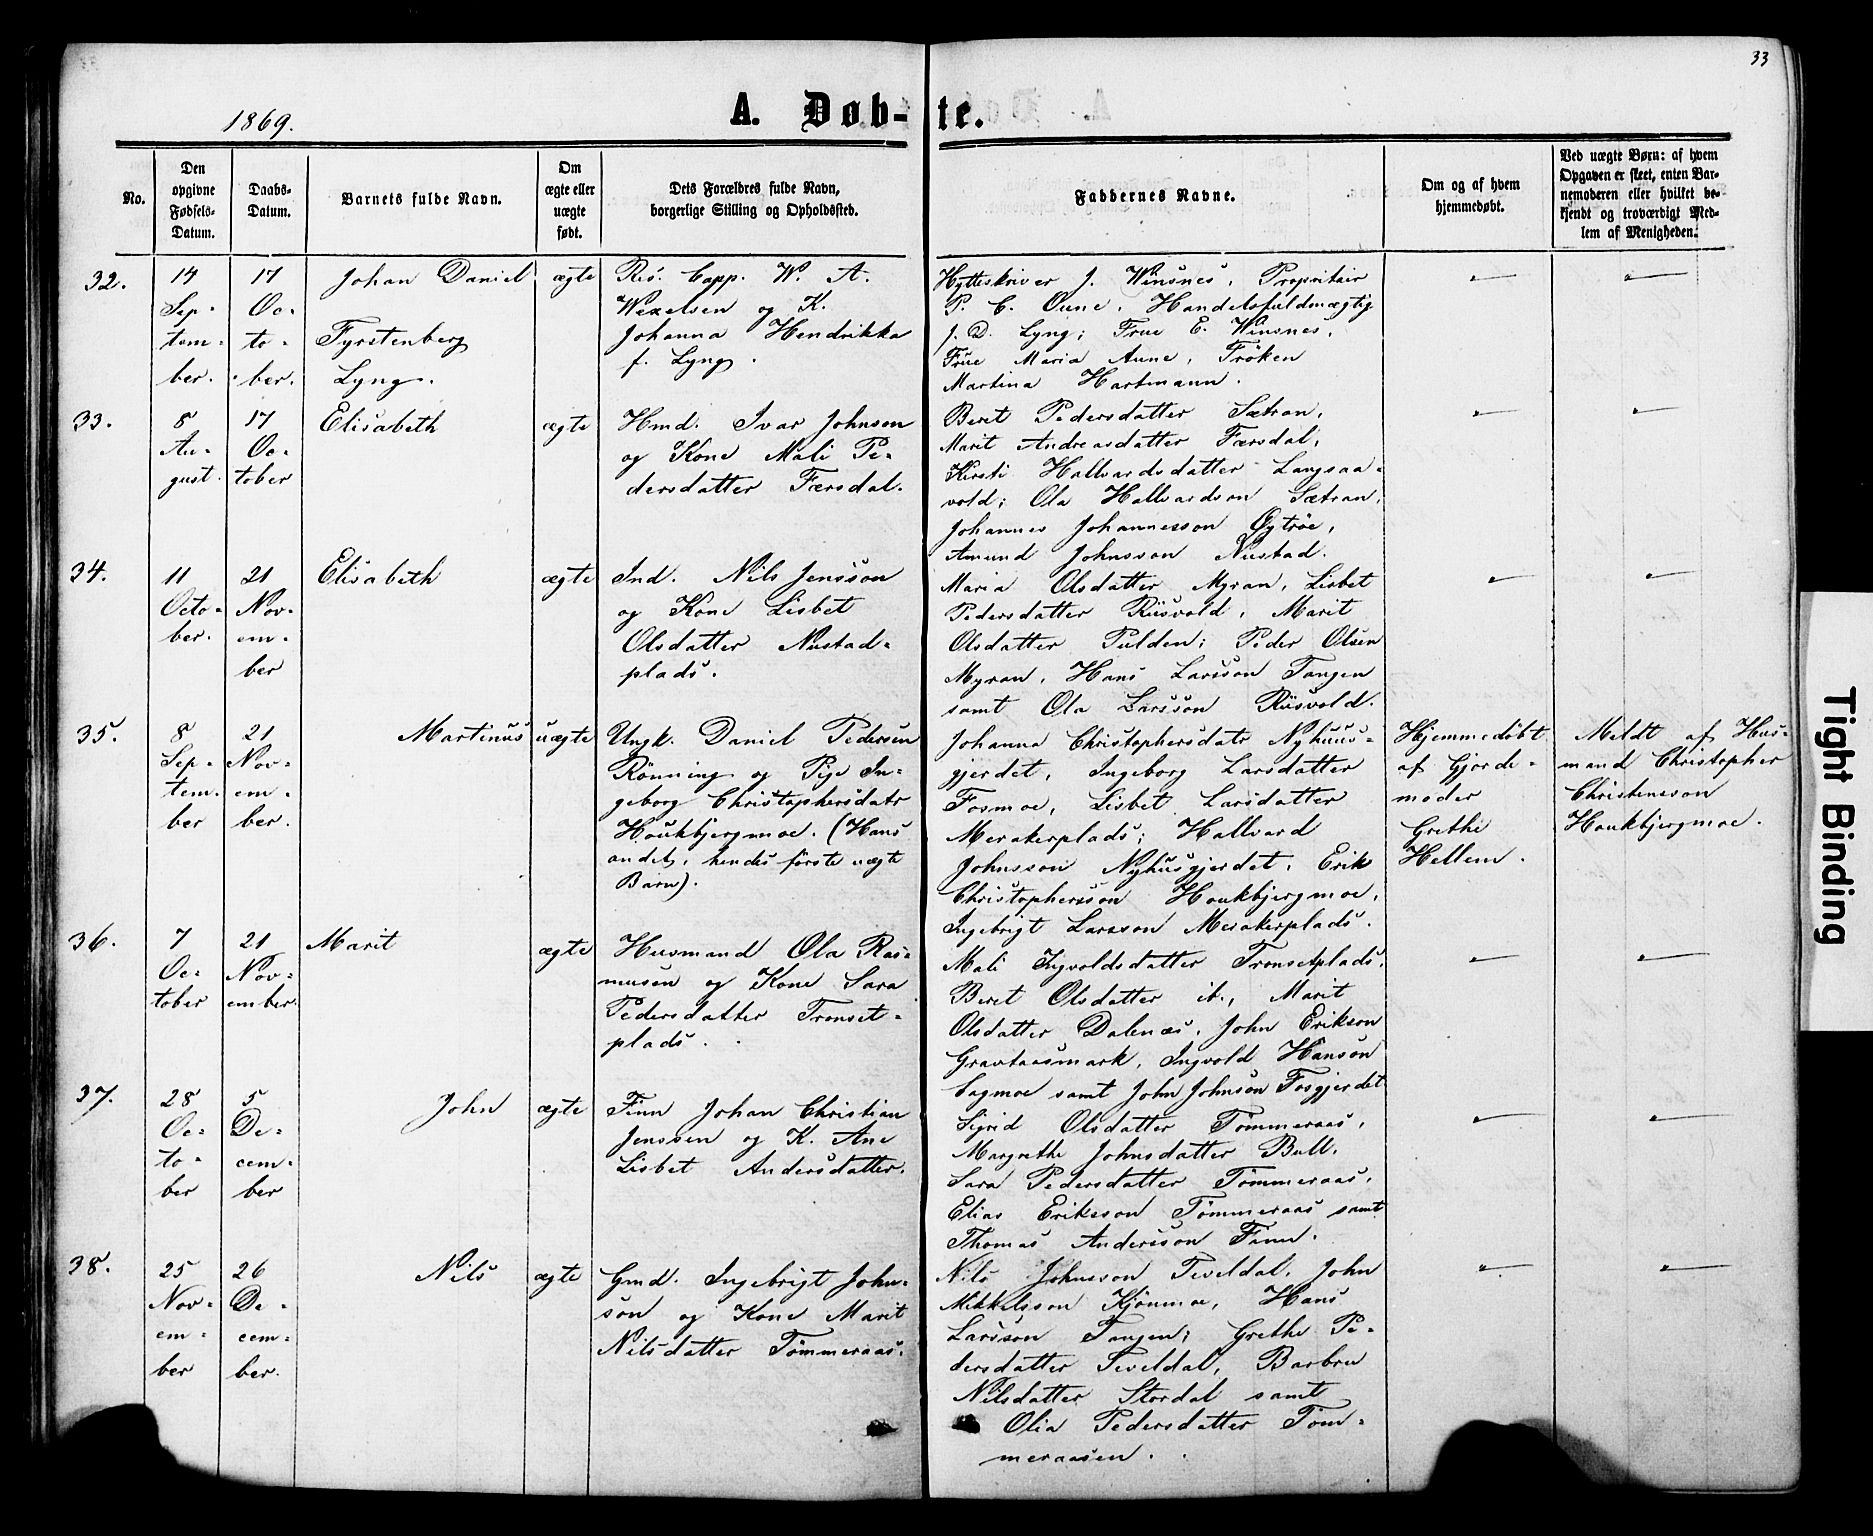 33
1869.
A. Døb-te.
No.
Den
opgivne
Fødsels-
Datum.
Daabs-
Datum.
Barnets fulde Navn.
Om
ægte eller
uægte
født.
Dets Forældres fulde Navn,
borgerlige Stilling og Opholdssted.
Faddernes Navne.
Om og af hvem
hjemmedøbt.
Ved uægte Børn: af hvem
Opgaven er skeet, enten Bar-
nemoderen eller hvilket be-
kjendt og troværdigt Med-
lem af Menigheden.
32.
14
Sep-
tem-
ber.
17
Oc-
to-
ber.
Johan Daniel
Fyrstenberg
Lyng.
ægte
Res. Capp. W. A.
Wexelsen og K.
Johanna Hendrikka
f. Lyng.
Hytteskriver J. Winsnes, Propritair
P. C. Oune, Handelsfuldmægtig
J. D. Lyng; Frue E. Winsnes,
Frue Maria Aune, Frøken
Martina Hartmann.
33.
8
Au-
gust.
17
Oc-
tober
Elisabeth
ægte
Hmd. Ivar Johnson
og Kone Mali Pe-
dersdatter Færsdal.
Beret Pedersdatter Sætran,
Marit Andreasdatter Færsdal,
Kirsti Hallvardsdatter Langsaa-
vold; Ola Hallvardson Sætran,
Johannes Johannesson Øytrøe,
Amund Johnsson Nustad.
34.
11
Octo-
ber.
21
Nov-
em-
ber
Elisabeth
ægte
Ind. Nils Jensson
og Kone Lisbet
Olsdatter Nustad-
plads.
Maria Olsdatter Myran, Lisbet
Pedersdatter Rusvold, Marit
Olsdatter Pulden; Peder Olsen
Myran, Hans Larsson Tangen
samt Ola Larsson Rusvold.
35.
8
Sep-
tem-
ber
21
Nov-
em-
ber.
Martinus
uægte
Ungk. Daniel Pedersen
Rönning og Pige In-
geborg Christophersdatr
Houkbjergmoe. (Hans
andet, hendes første uægte
Barn).
Johanna Christophersdatr Nyhuus-
gjerdet, Ingeborg Larsdatter
Fosmoe, Lisbet Larsdatter
Merakerplads; Hallvard
Johnsson Nyhusgjerdet, Erik
Christophersson Houkbjergmoe,
Ingebrigt Larsson Merakerplads.
Hjemmedöbt
af Gjorde-
moder
Grethe
Hellem.
Meldt af Hus-
mand Christopher
Christensson
Houkbjergmoe.
36.
7
Oc-
tober
21
Nov-
ember.
Marit
ægte
Husmand Ola Ras-
musen og Kone Sara
Pedersdatter Tronset-
plads.
Mali Ingvoldsdatter Tronsetplads,
Beret Olsdatter ib., Marit
Olsdatter Dalenæs, John Erikson
Gravtaasmark, Ingvold Hanson
Sagmoe samt John Johnson Fosgjerdet
37.
28
Oc-
to-
ber
5
De-
cem-
ber
John
ægte
Finn Johan Christian
Jenssen og K. Ane
Lisbet Andersdatter.
Sigrid Olsdatter Tömmeraas,
Margrethe Johnsdatter Bull,
Sara Pedersdatter Tömmeraas,
Elias Eriksson Tömmeraas samt
Thomas Andersson Finn.
38.
25
Nov-
em-
ber
26
De-
cem-
ber.
Nils
ægte
Gmd. Ingebrigt John-
son og Kone Marit
Nilsdatter Tömmeraas.
Nils Johnsson Teveldal, John
Mikkelsson Kjönmoe, Hans
Larsson Tangen; Grethe Pe-
dersdatter Teveldal, Barbro
Nilsdatter Stordal samt
Olia Pedersdatter Töm-
meraasen.
Tight Binding